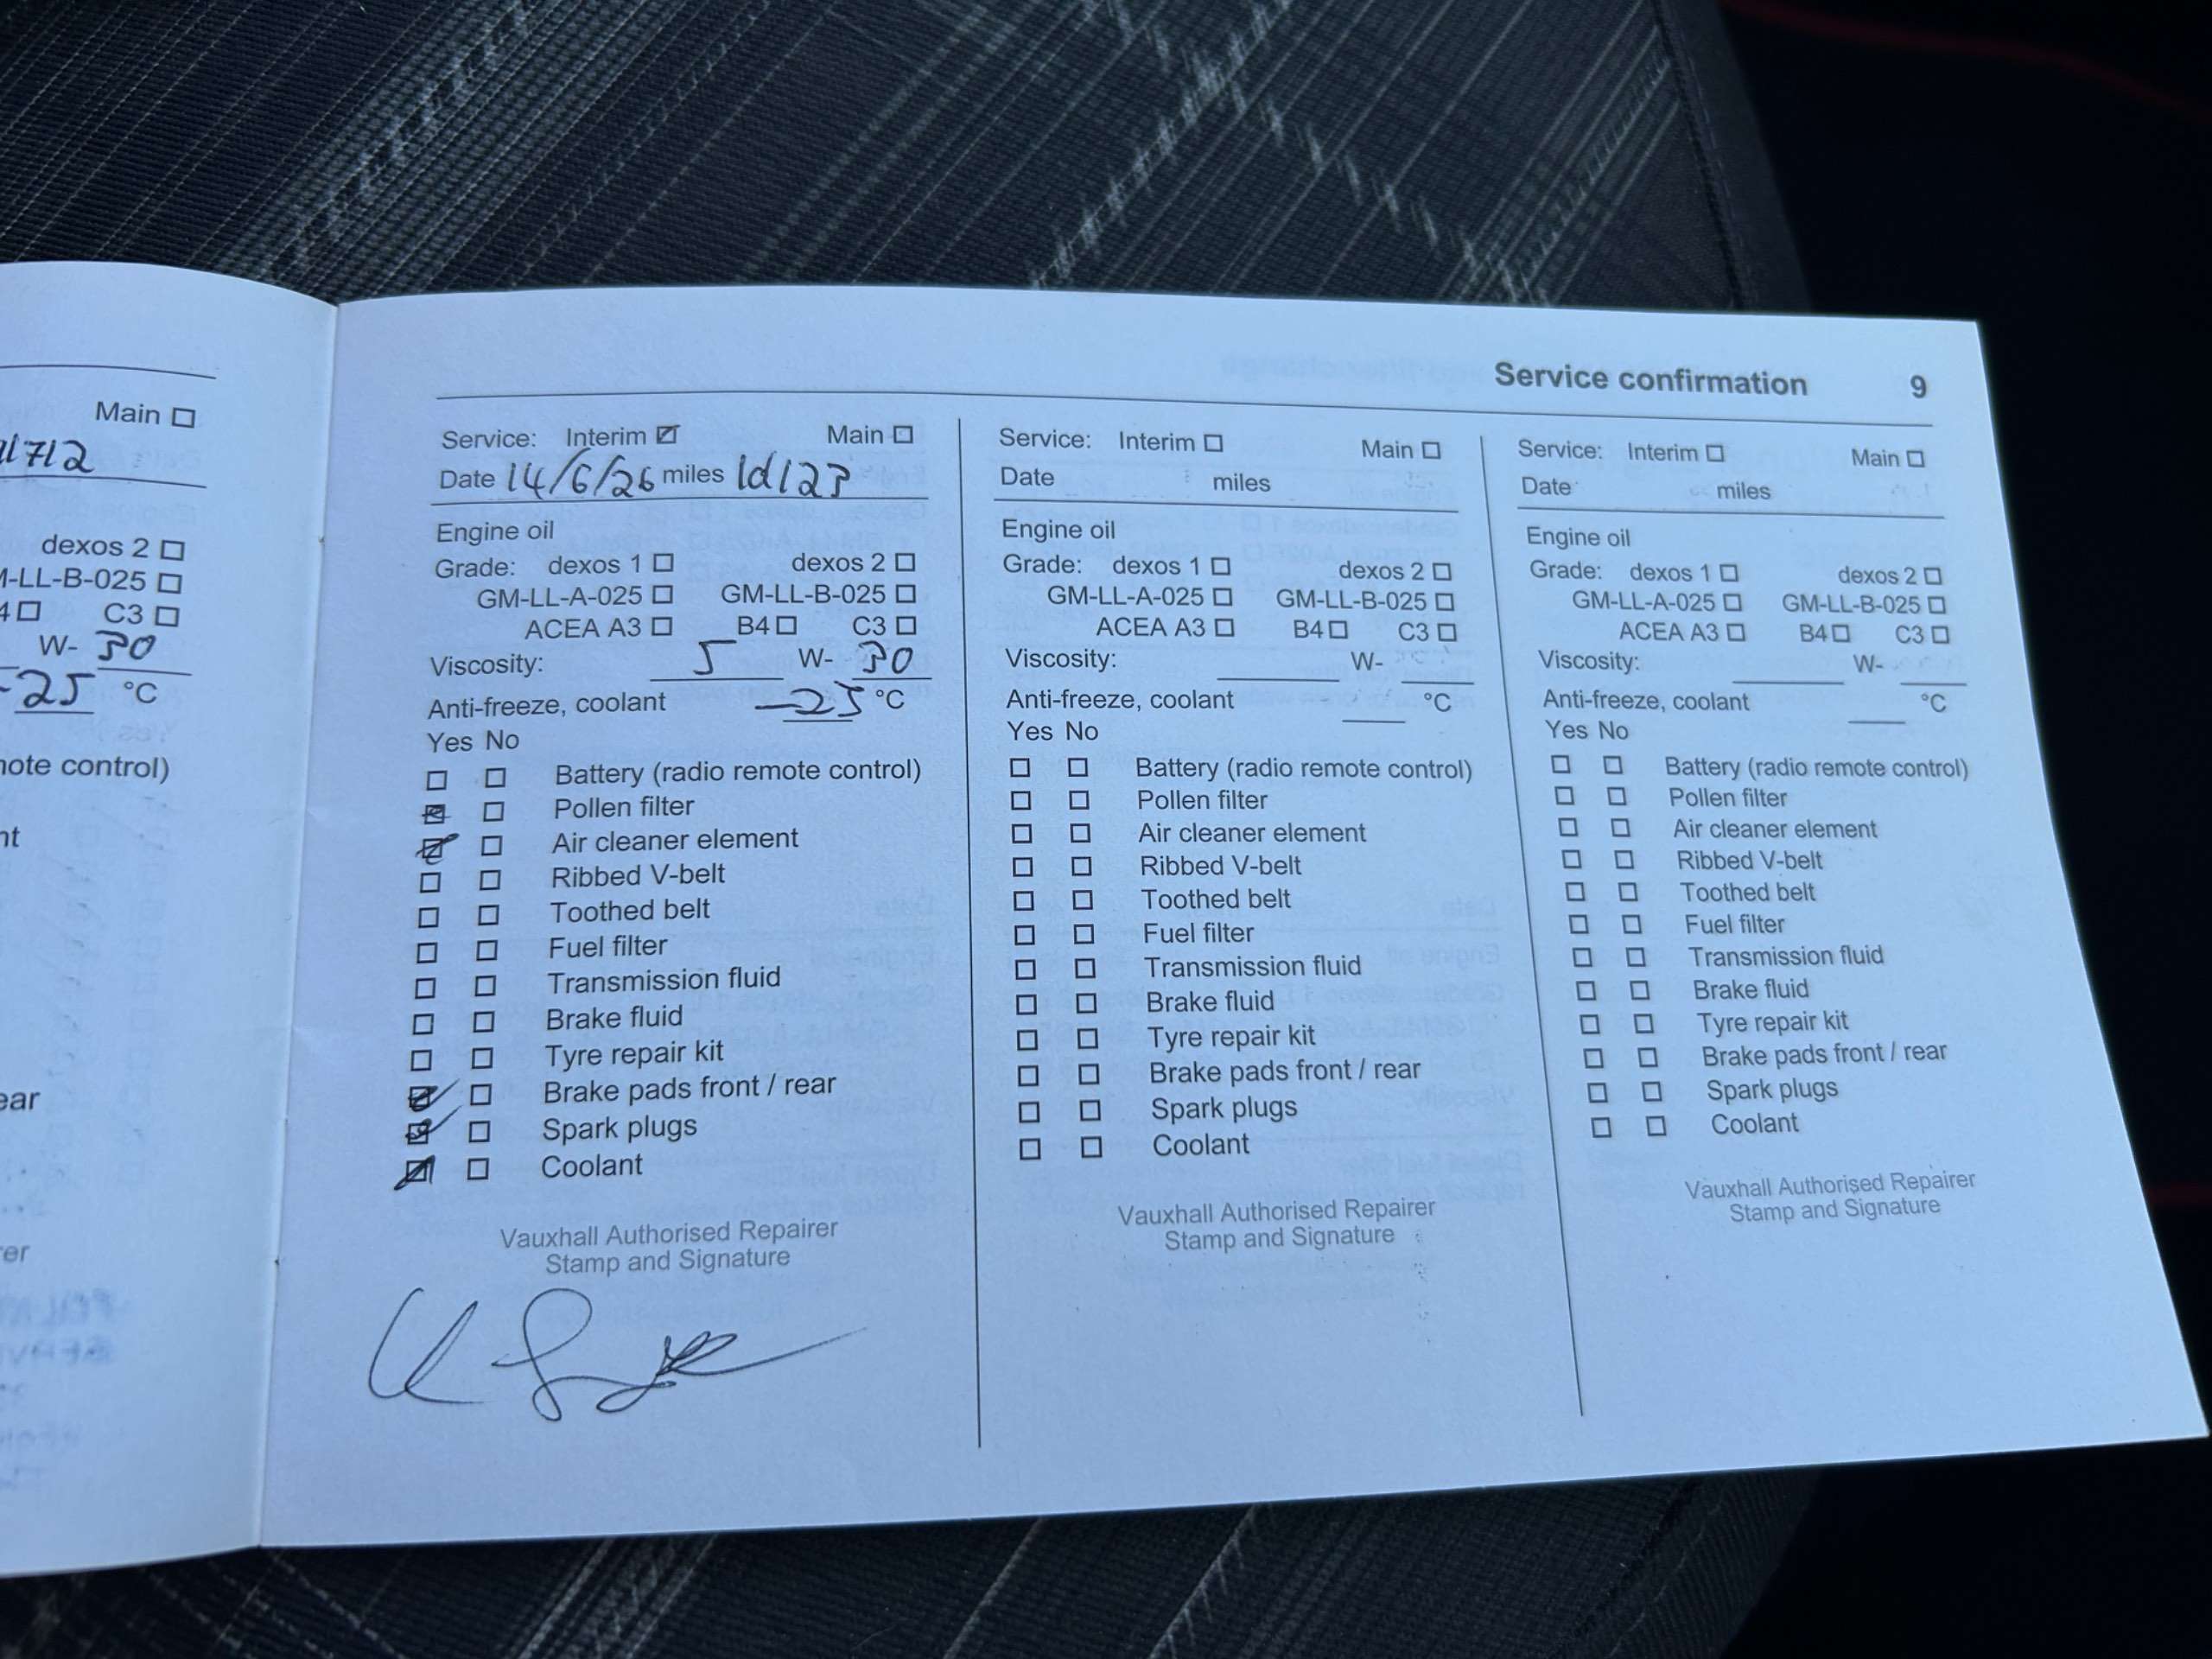 Main
dexos 2
C3
W- 30
-25 °C
Service confirmation 9
Service: Interim Main
Date 14/6/26 miles
Engine oil
Grade: dexos 1 dexos 2
GM-LL-A-025 GM-LL-B-025
ACEA A3 B4 C3
Viscosity: 5 W- 30
Anti-freeze, coolant -25 °C
Yes No
Battery (radio remote control)
Pollen filter
Air cleaner element
Ribbed V-belt
Toothed belt
Fuel filter
Transmission fluid
Brake fluid
Tyre repair kit
Brake pads front / rear
Spark plugs
Coolant
Vauxhall Authorised Repairer
Stamp and Signature
Service: Interim Main
Date miles
Engine oil
Grade: dexos 1 dexos 2
GM-LL-A-025 GM-LL-B-025
ACEA A3 B4 C3
Viscosity: W-
Anti-freeze, coolant °C
Yes No
Battery (radio remote control)
Pollen filter
Air cleaner element
Ribbed V-belt
Toothed belt
Fuel filter
Transmission fluid
Brake fluid
Tyre repair kit
Brake pads front / rear
Spark plugs
Coolant
Vauxhall Authorised Repairer
Stamp and Signature
Service: Interim Main
Date miles
Engine oil
Grade: dexos 1 dexos 2
GM-LL-A-025 GM-LL-B-025
ACEA A3 B4 C3
Viscosity: W-
Anti-freeze, coolant °C
Yes No
Battery (radio remote control)
Pollen filter
Air cleaner element
Ribbed V-belt
Toothed belt
Fuel filter
Transmission fluid
Brake fluid
Tyre repair kit
Brake pads front / rear
Spark plugs
Coolant
Vauxhall Authorised Repairer
Stamp and Signature